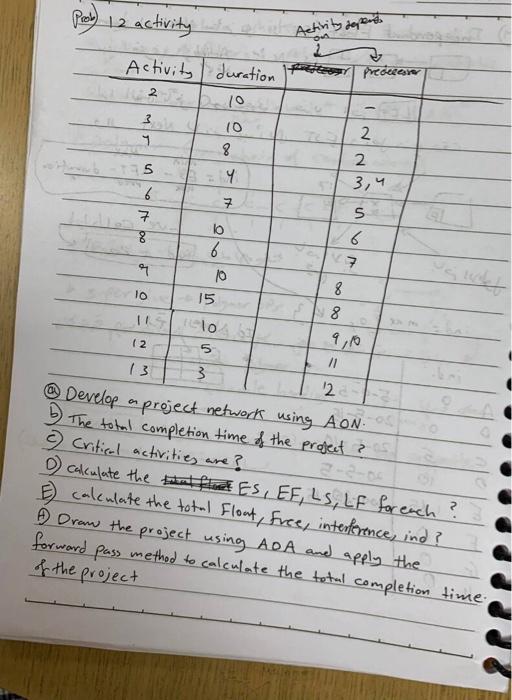 Prob) 12 activity
Activity depends
on
Activity duration predecessor
2 10 -
3 10 2
4 8 2
5 4 3,4
6 7 5
7 10 6
8 6 7
9 10 8
10 15 8
11 10 9,10
12 5 11
13 3 12
a) Develop a project network using AON.
b) The total completion time of the project?
C) Critical activities are?
D) Calculate the ES, EF, LS, LF foreach?
E) calculate the total Float, Free, interference, ind?
Draw the project using AOA and apply the
forward pass method to calculate the total completion time.
of the project